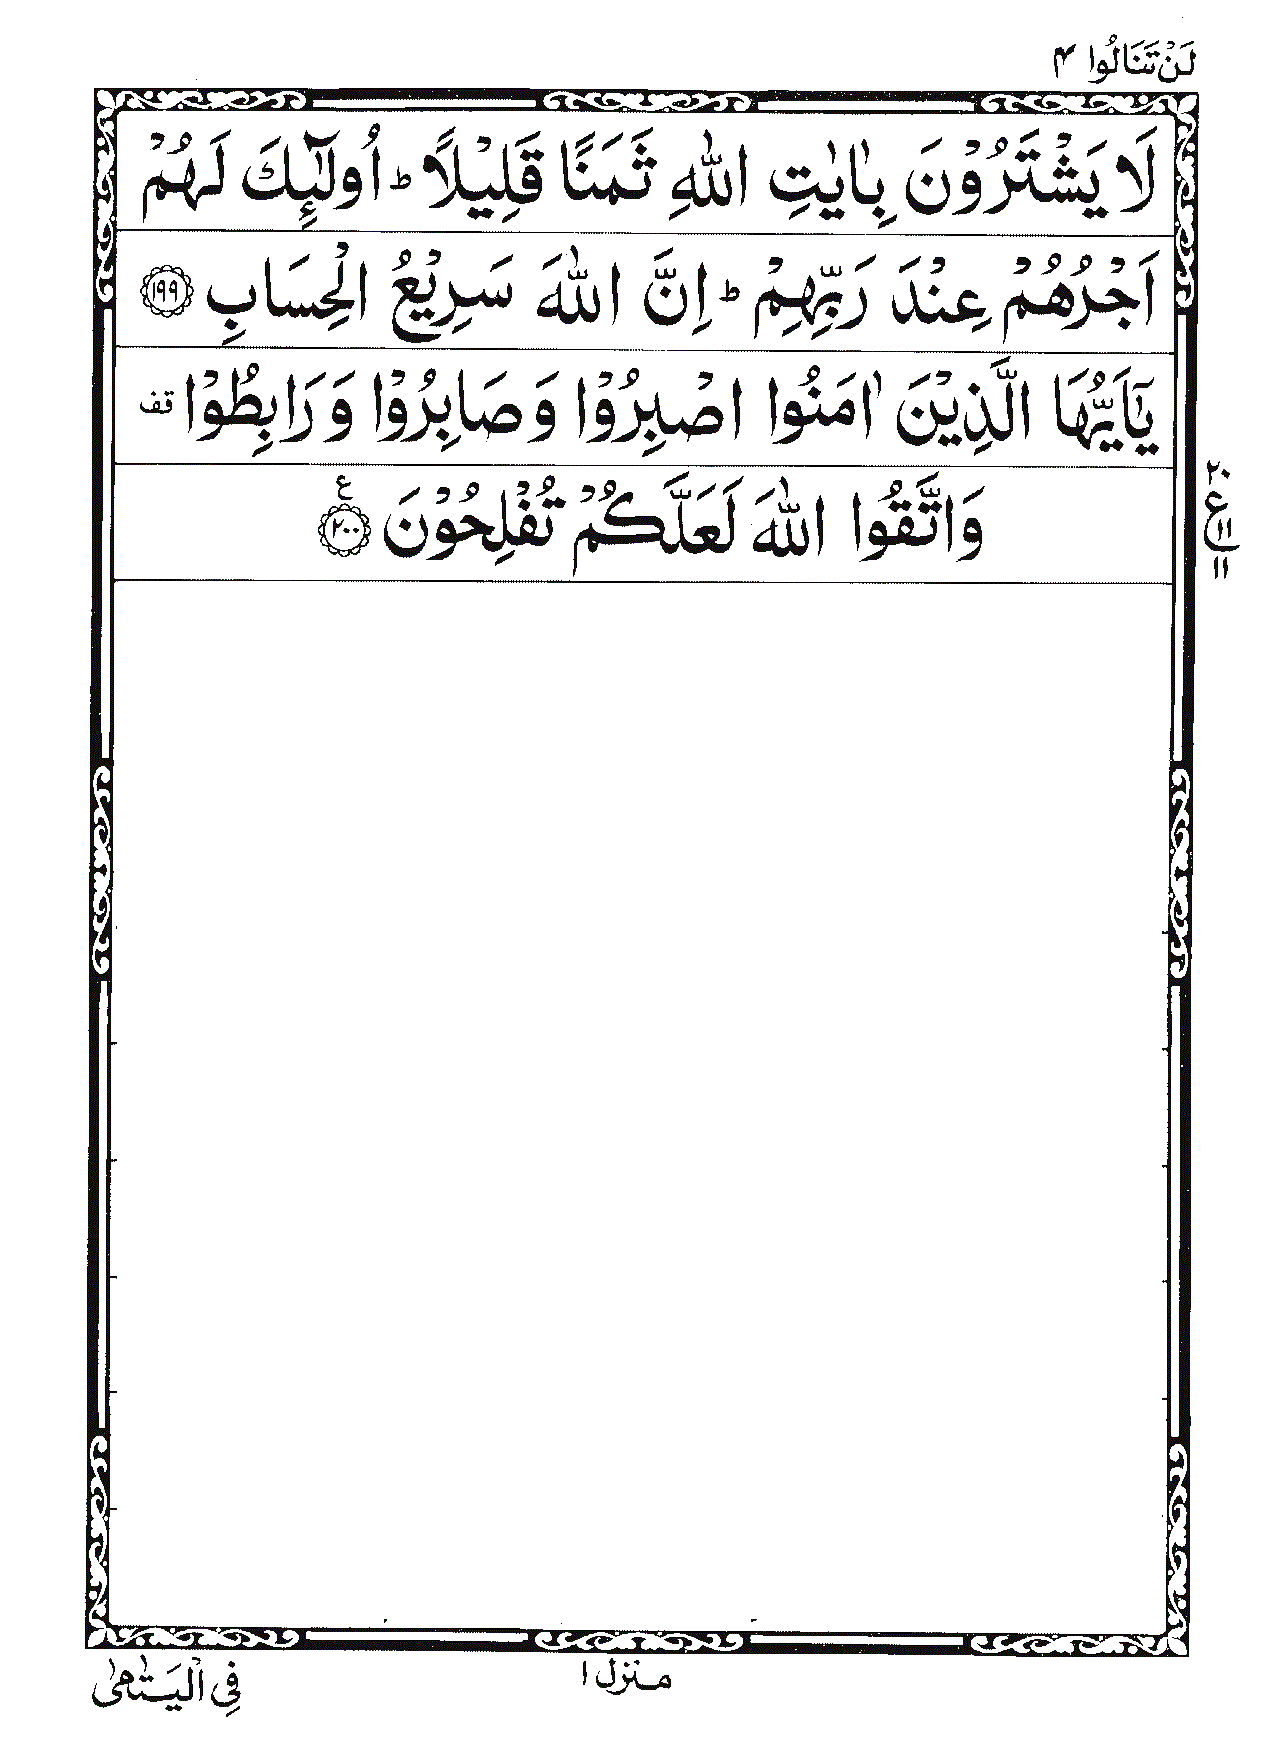 لَنْ تَنَالُوا ۴
لَا يَشْتَرُوْنَ بِاٰيٰتِ اللّٰهِ ثَمَنًا قَلِيْلًا ؕ اُولٰٓئِكَ لَهُمْ
اَجْرُهُمْ عِنْدَ رَبِّهِمْ ؕ اِنَّ اللّٰهَ سَرِيْعُ الْحِسَابِ ۱۹۹
يٰٓاَيُّهَا الَّذِيْنَ اٰمَنُوا اصْبِرُوْا وَصَابِرُوْا وَرَابِطُوْا قف
وَاتَّقُوا اللّٰهَ لَعَلَّكُمْ تُفْلِحُوْنَ ۲۰۰ ع
۲۰
ع
۱۱
۱۱
منزل ۱
فِي الْيَتٰمٰى